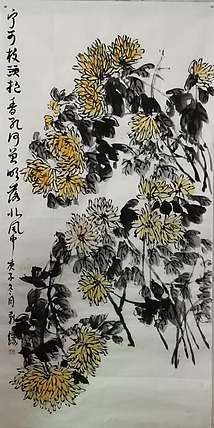 宁可枝头抱香死何曾吹落北风中
庚子冬月